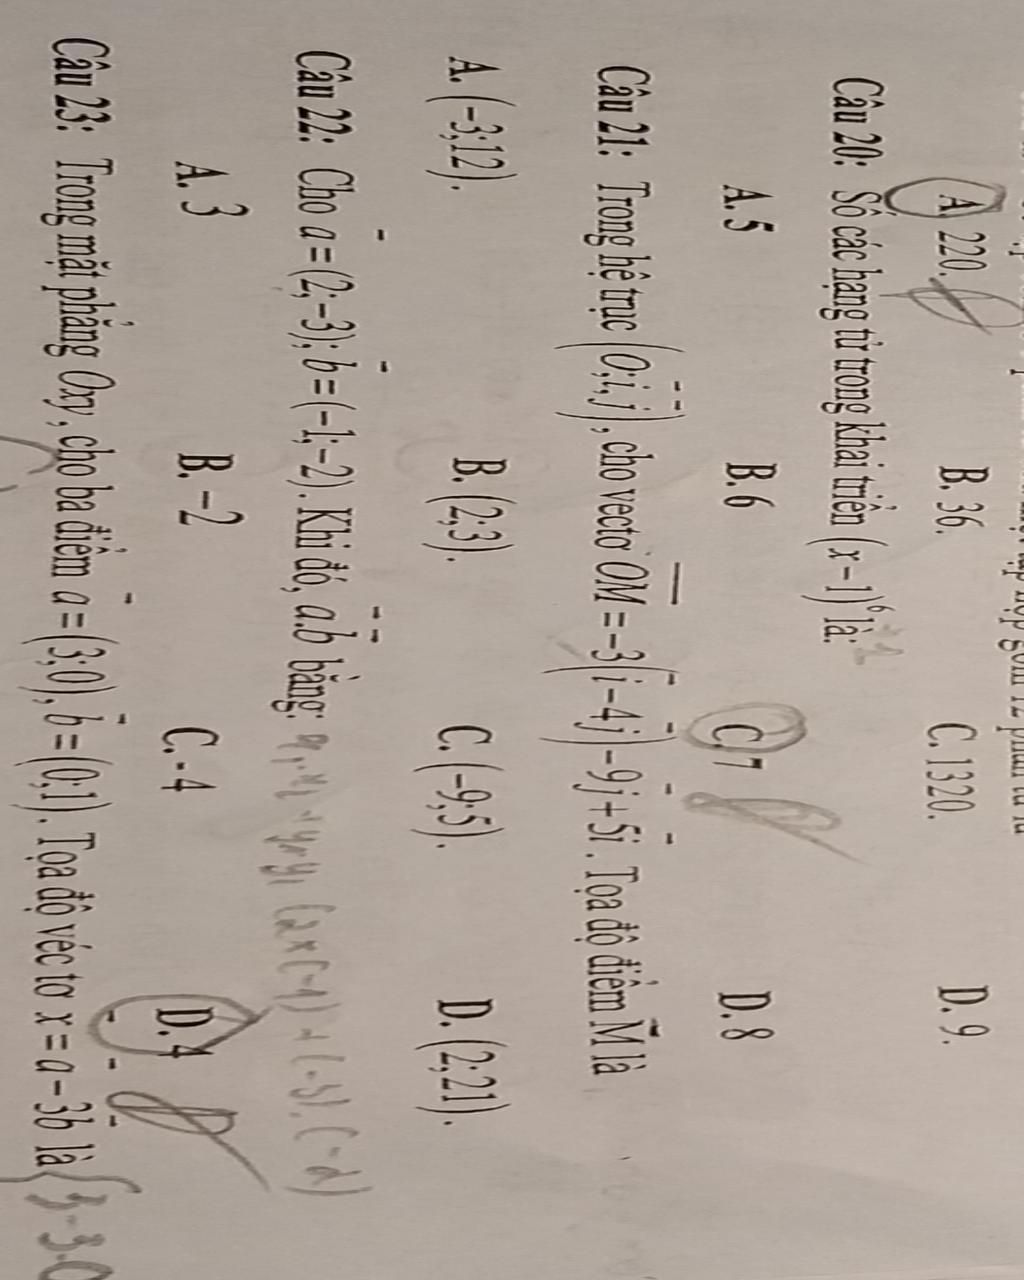 A. 220. B. 36. C. 1320. D. 9.
Câu 20: Số các hạng tử trong khai triển (x – 1)⁶ là:
A. 5 B. 6 C. 7 D. 8
Câu 21: Trong hệ trục (O;i,j), cho vectơ OM = –3(i – 4j) – 9j + 5i. Tọa độ điểm M là
A. (–3;12). B. (2;3). C. (–9;5). D. (2;21).
Câu 22: Cho a = (2;–3); b = (–1;–2). Khi đó, a.b bằng: (2×(-1) + (-3).(-2)
A. 3 B. –2 C. -4 D. 4
Câu 23: Trong mặt phẳng Oxy, cho ba điểm a = (3;0), b = (0;1). Tọa độ véc tơ x = a – 3b là { 3-3.0